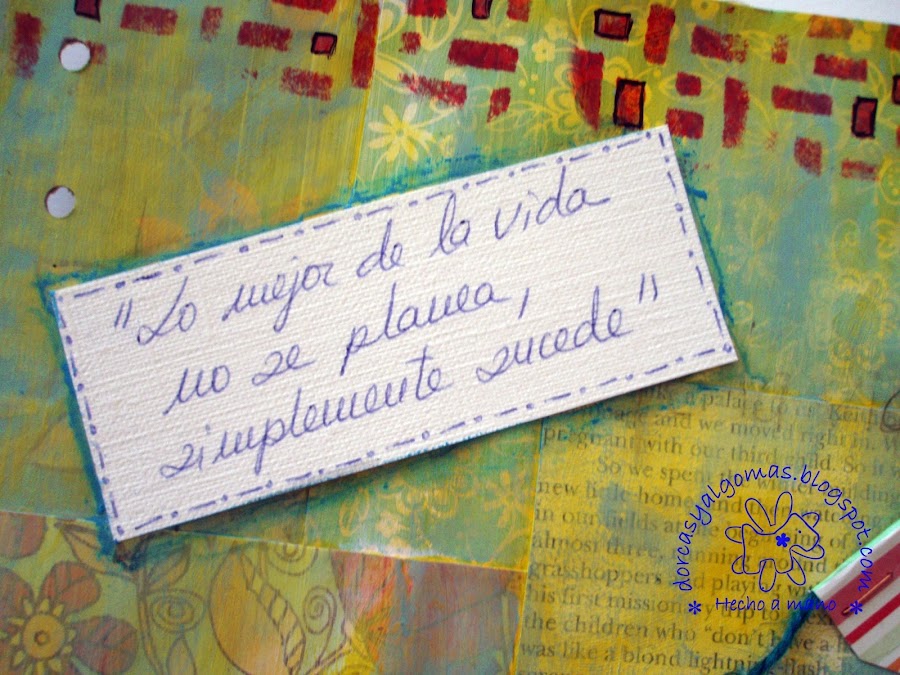 "Lo mejor de la vida
no se planea,
simplemente sucede"
a palace to us. Keith
and we moved right in. W
pregnant with our third child. So it w
So we spent the winter
new little home and
in our fields at the of
almost three, running around
grasshoppers and playing with
his first missionary trip to
the children who "don't have a
was like a blond lightning flash.
dorcasyalgomas.blogspot.com
* Hecho a mano *